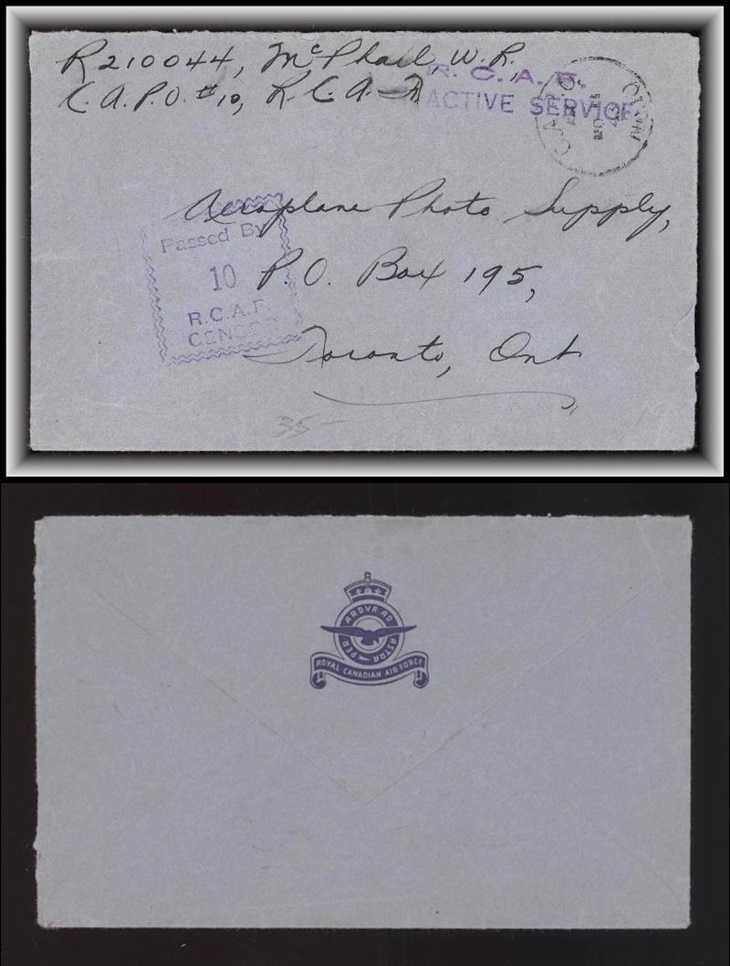 R210044, McPhail, W.R.,
C.A.P.O. #10, R.C.A.F.
R. C. A. F.
ACTIVE SERVICE
Aeroplane Photo Supply,
Passed By
10
R.C.A.F.
CENSOR
P.O. Box 195,
Toronto, Ont
35-
PER ARDVA AD ASTRA
ROYAL CANADIAN AIR FORCE